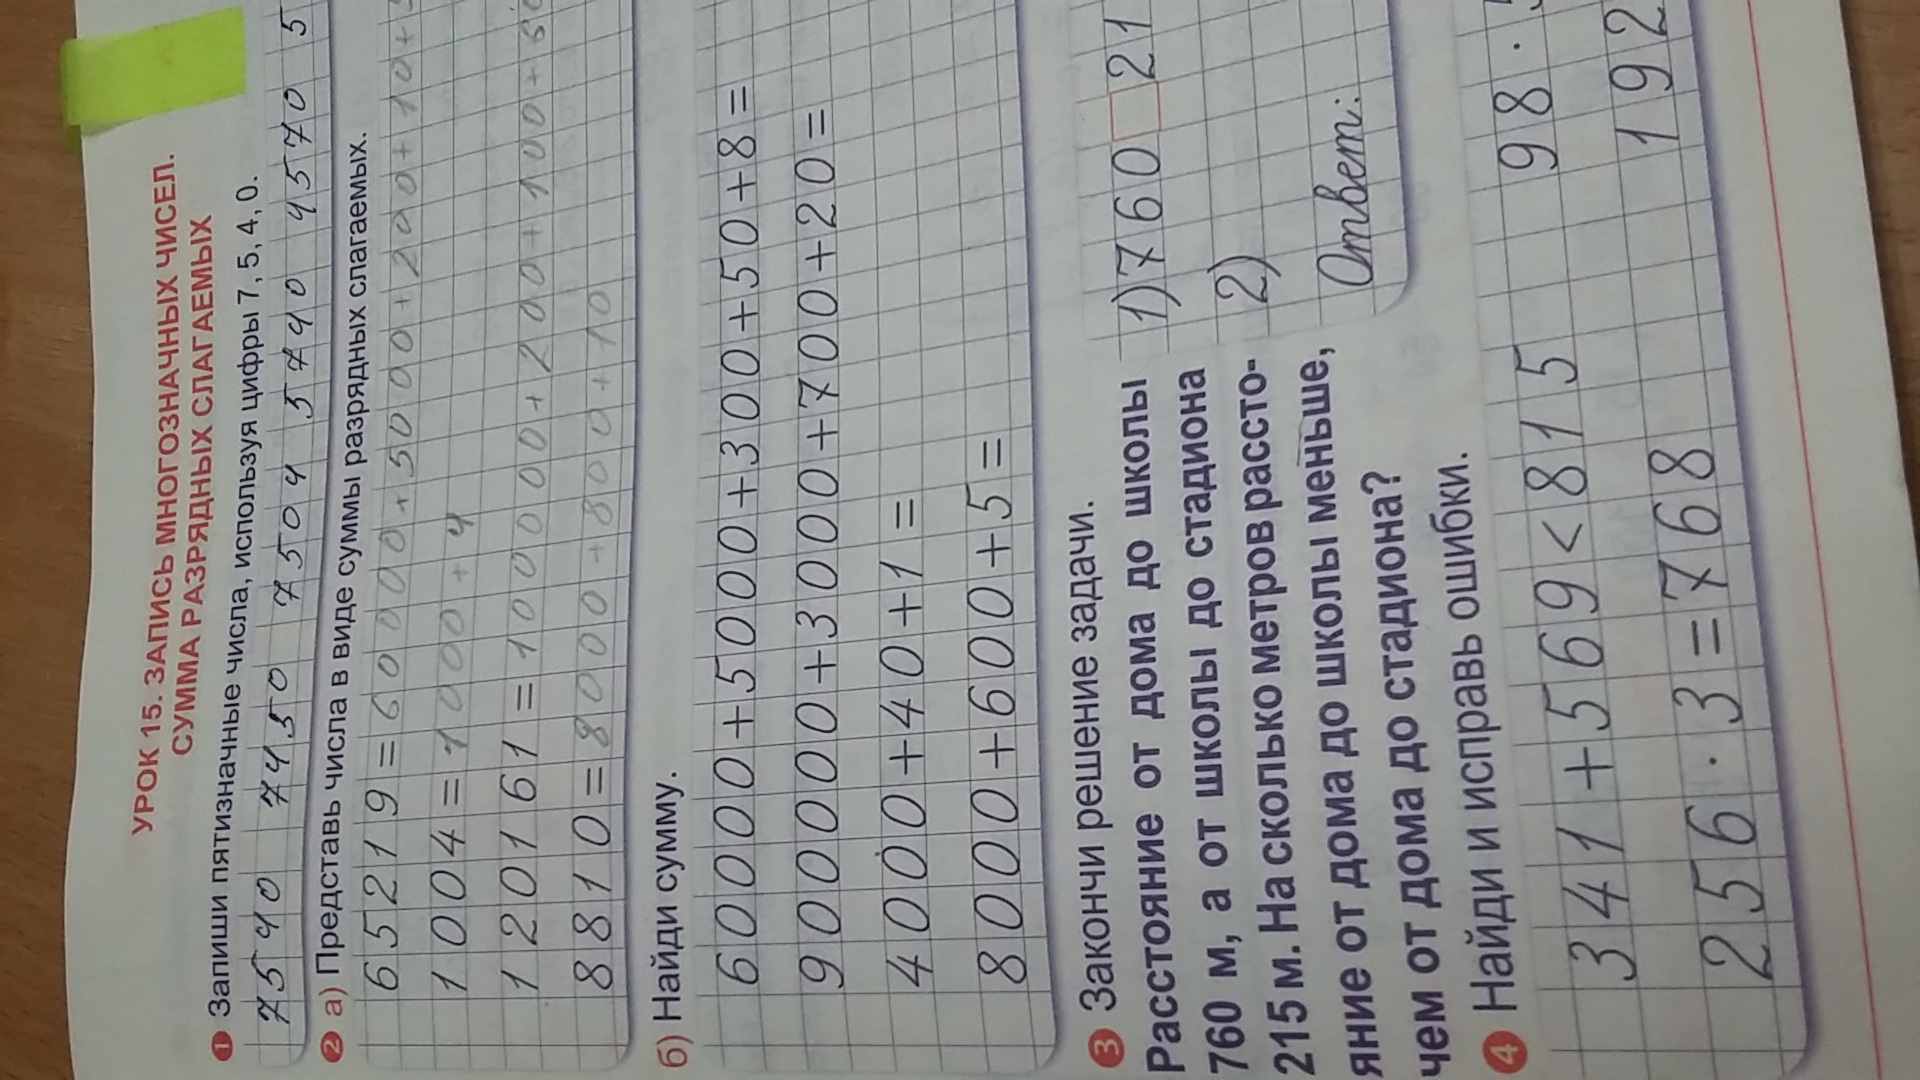 УРОК 15. ЗАПИСЬ МНОГОЗНАЧНЫХ ЧИСЕЛ.
СУММА РАЗРЯДНЫХ СЛАГАЕМЫХ
1 Запиши пятизначные числа, используя цифры 7, 5, 4, 0.
75540 74450 75504 55740 44570 5
2 а) Представь числа в виде суммы разрядных слагаемых.
65219=60000+5000+200+10+
1004=1000+4
120161=100000+20000+100+
8810=8000+800+10
б) Найди сумму.
60000+5000+300+50+8=
900000+3000+700+20=
4000+40+1=
8000+600+5=
3 Закончи решение задачи.
Расстояние от дома до школы
760 м, а от школы до стадиона
215 м. На сколько метров рассто-
яние от дома до школы меньше,
чем от дома до стадиона?
1)760 21
2)
Ответ:
4 Найди и исправь ошибки.
341+569<815 98·
256·3=768 192